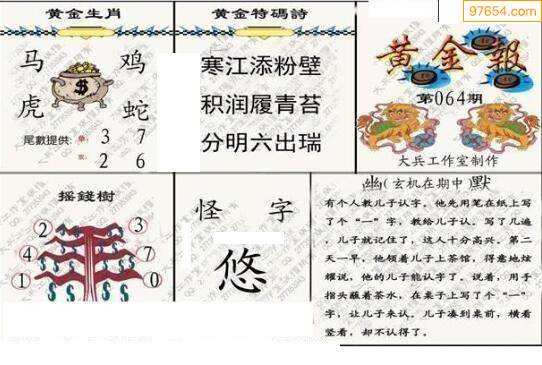 97654.com
黄金生肖
马 鸡
虎 蛇
$
尾數提供: 单: 3 7
双: 2 6
黄金特碼詩
寒江添粉壁
积润履青苔
分明六出瑞
黄金報
第064期
大兵工作室制作
摇錢樹
2 3
4 7
1 0
怪 字
悠
幽(玄机在期中)默
有个人教儿子认字。他先用笔在纸上写
了个“一”字，教给儿子认。写了几遍
，儿子就记住了，这人十分高兴。第二
天一早，他领着儿子上茶馆，得意地炫
耀说，他的儿子能认字了。说着，用手
指头蘸着茶水，在桌子上写了个“一”
字，让儿子来认。儿子凑到桌前，横看
竖看，却不认得了。